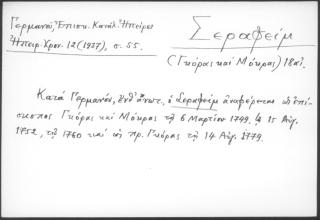 Γερμανού, Ἐπισκ. Κατάλ. Ἠπείρου
Ἠπειρ. Χρον. 12 (1937), σ. 55.
Σεραφείμ
(Γκόρας καί Μόκρας) 18αἰ.
Κατά Γερμανόν, ἔνθ' ἀνωτ., ὁ Σεραφείμ ἀναφέρεται ὡς ἐπί-
σκοπος Γκόρας καί Μόκρας τῇ 6 Μαρτίου 1749, τῇ 15 Αὐγ.
1752, τῷ 1760 καί ὡς πρ. Γκόρας τῇ 14 Αὐγ. 1779.